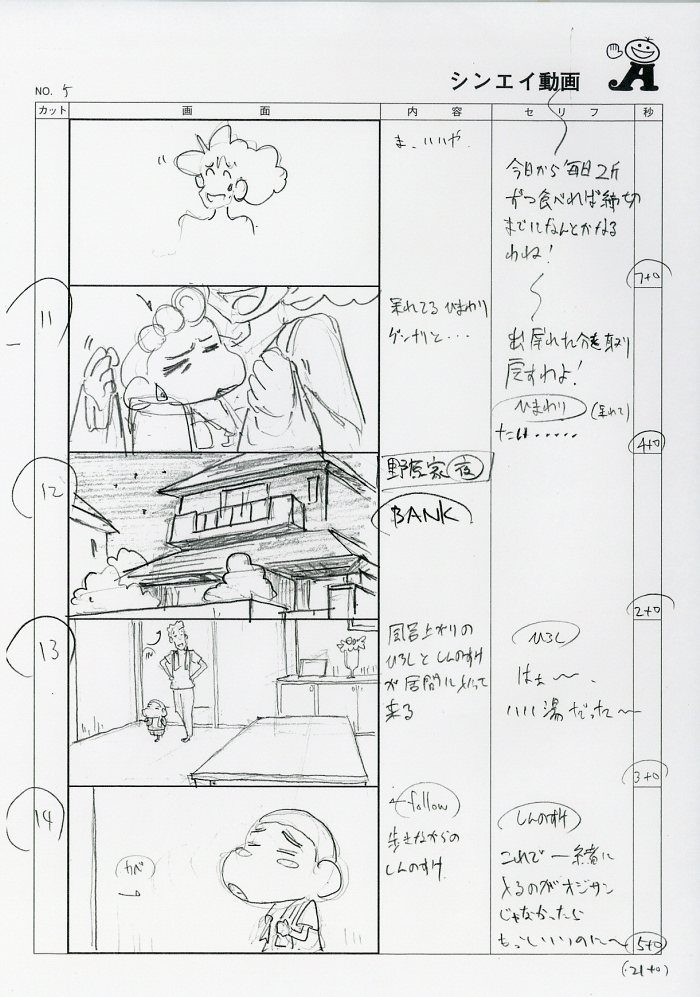 シンエイ動画
A
NO. 5
カット 画面 内容 セリフ 秒
ま、いいや
今日から毎日2斤
ずつ食べれば締切
までになんとかなる
わね!
7+0
11
呆れてる ひまわり
ゲンナリと・・・
出遅れた分を取り
戻すわよ!
ひまわり (呆れて)
たは・・・・・
4+0
12
野原家 夜
BANK
2+0
13
IN
風呂上がりの
ひろしとしんのすけ
が居間に入って
来る
ひろし
はぁ〜、
いい湯だった〜
3+0
14
カベ
follow
歩きながらの
しんのすけ
しんのすけ
これで一緒に
入るのがオジサン
じゃなかったら
もっといいのに〜
5+0
(21+0)